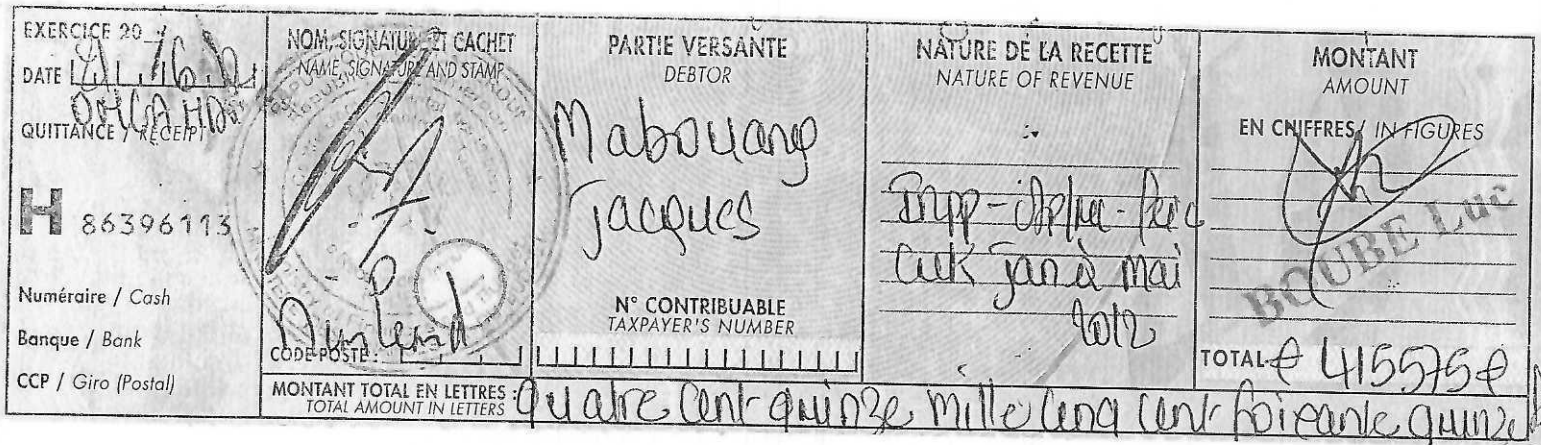 EXERCICE 20
DATE
QUITTANCE / RECEIPT
H 86396113
Numéraire / Cash
Banque / Bank
CCP / Giro (Postal)
NOM, SIGNATURE ET CACHET
NAME, SIGNATURE AND STAMP
CODE POSTE :
PARTIE VERSANTE
DEBTOR
Mabouang
Jacques
N° CONTRIBUABLE
TAXPAYER'S NUMBER
NATURE DE LA RECETTE
NATURE OF REVENUE
Jan à Mai
2012
MONTANT
AMOUNT
EN CHIFFRES / IN FIGURES
BOUBE Luc
TOTAL 415575
MONTANT TOTAL EN LETTRES :
TOTAL AMOUNT IN LETTERS
Quatre Cent quinze mille cinq cent soixante quinze